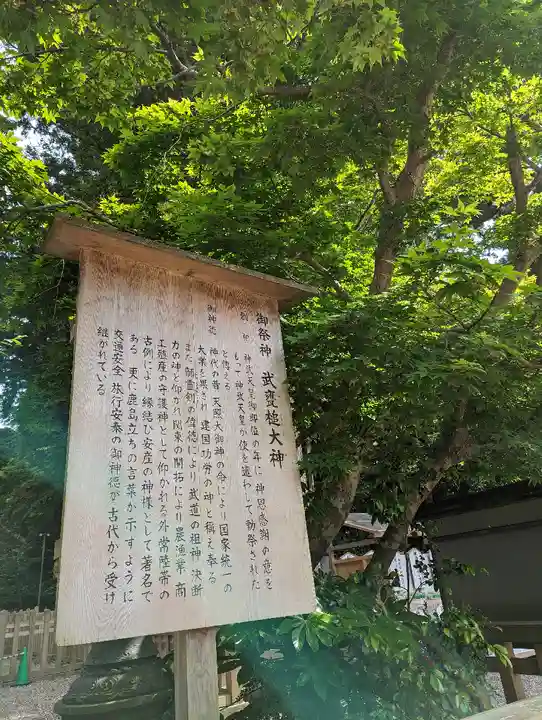 御祭神　武甕槌大神
御創祀　神武天皇御即位の年に　神恩感謝の意を
もって神武天皇が使を遣わして勅祭された
と伝える
御神徳　神代の昔　天照大御神の命により国家統一の
大業を果され　建国功労の神と称え奉る
また　韴霊剣の偉徳により　武道の祖神　決断
力の神と仰がれ関東の開拓により農漁業、商
工殖産の守護神として仰かれる外　常陸帯の
古例により　縁結び安産の神様として著名で
ある　更に鹿島立ちの言葉が示すように
交通安全　旅行安泰の御神徳が古代から受け
継がれている